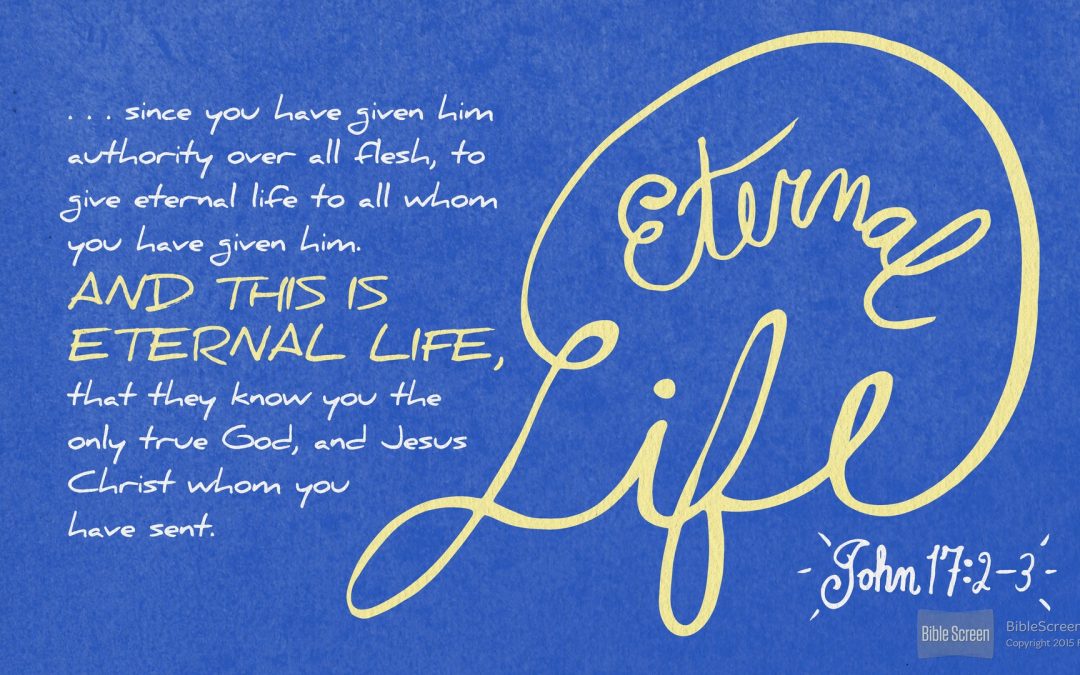 . . . since you have given him
authority over all flesh, to
give eternal life to all whom
you have given him.
AND THIS IS
ETERNAL LIFE,
that they know you the
only true God, and Jesus
Christ whom you
have sent.
Eternal
Life
John 17:2-3
Bible Screen
BibleScreen
Copyright 2015